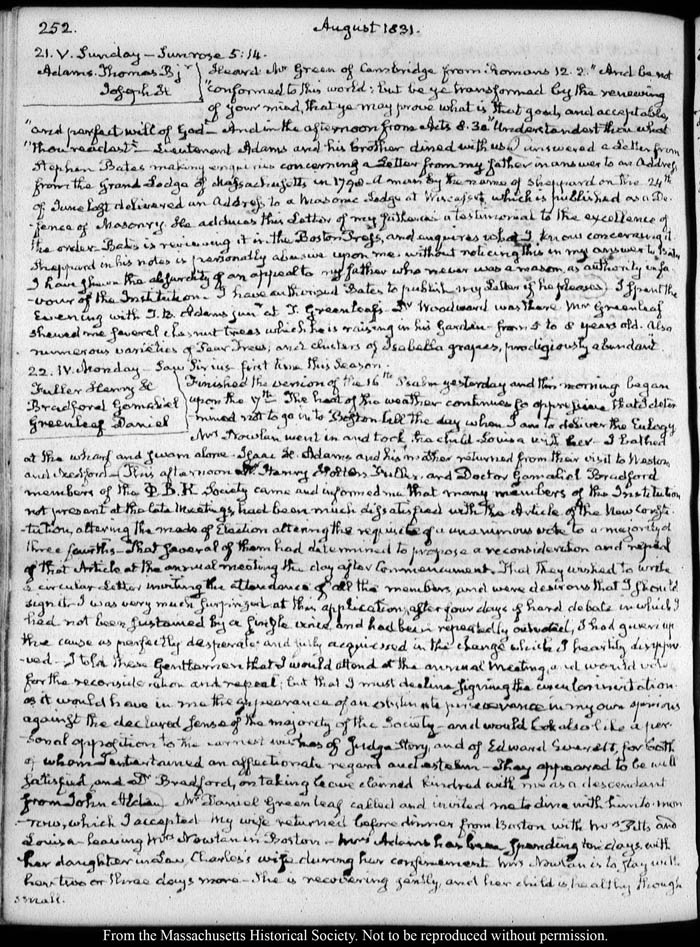 252. August 1831.
21. V. Sunday - Sun rose 5:14.
Adams. Thomas B. jr Heard Mr Green of Cambridge from Romans 12. 2. "And be not
Joseph H "conformed to this world: but be ye transformed by the renewing
of your mind, that ye may prove what is that good, and acceptable,
"and perfect will of God" - And in the afternoon from Acts 8. 30 "Understandest thou what
"thou readest" - Lieutenant Adams and his brother dined with us. I answered a Letter from
Stephen Bates making enquiries concerning a Letter from my father in answer to an Address
from the Grand Lodge of Massachusetts in 1798. A man by the name of Sheppard on the 24th
of June last delivered an Address to a Masonic Lodge at Wiscasset, which is published as a De-
-fence of Masonry. He adduces this Letter of my father as a testimonial to the excellence of
the order. Bates is reviewing it in the Boston Press, and enquires what I know concerning it.
Sheppard in his notes is personally abusive upon me. without noticing this in my answer to Bates
I have shewn the absurdity of an appeal to my father who never was a mason, as authority in fa-
-vour of the Institution. I have authorized Bates to publish my Letter if he pleases. I spent the
Evening with T. B. Adams junr at T. Greenleaf's - Dr Woodward was there Mr Greenleaf
shewed me several chesnut trees which he is raising in his Garden - from 5 to 8 years old. Also
numerous varieties of Pear Trees, and clusters of Isabella grapes, prodigiously abundant.
22. IV. Monday - Saw Sirius first time this Season.
Fuller Henry H Finished the version of the 16th Psalm yesterday and this morning began
Bradford Gamaliel upon the 17th. The heat of the weather continues so oppressive that I deter-
Greenleaf Daniel -mined not to go in to Boston till the day when I am to deliver the Eulogy
Mrs Nowlan went in and took the child Louisa with her - I bathed
at the wharf and swam alone. Isaac H. Adams and his mother returned from their visit to Weston
and Medford - This afternoon Mr Henry Holton Fuller, and Doctor Gamaliel Bradford
members of the Φ.B.K Society came and informed me that many members of the Institution
not present at the late Meetings, had been much dissatisfied with the Article of the New consti-
-tution, altering the mode of Election altering the requisite of a unanimous vote to a majority of
three fourths - That several of them had determined to propose a reconsideration and repeal
of that Article at the annual meeting the day after Commencement. That they wished to write
a circular Letter inviting the attendance of all the members, and were desirous that I should
sign it. I was very much surprized at this application, after four days of hard debate in which I
had not been sustained by a single voice, and had been repeatedly outvoted, I had given up
the cause as perfectly desperate and fully acquiesced in the change which I heartily disappro-
-ved - I told these Gentlemen that I would attend at the annual Meeting, and would vote
for the reconsideration and repeal; but that I must decline signing the circular invitation
as it would have in me the appearance of an obstinate perseverance in my own opinions
against the declared sense of the majority of the Society - and would look also like a per-
-sonal opposition to the earnest wishes of Judge Story, and of Edward Everett, for both
of whom I entertained an affectionate regard and esteem - They appeared to be well
satisfied, and Dr Bradford, on taking leave claimed kindred with me as a descendant
from John Alden. Mr Daniel Greenleaf called and invited me to dine with him to-mor-
-row, which I accepted. My wife returned before dinner from Boston with Mrs Pitts and
Louisa - leaving Mrs Nowlan in Boston - Mrs Adams has been spending two days with
her daughter in Law, Charles's wife during her confinement Mrs Nowlan is to stay with
her two or three days more - She is recovering gently, and her child is healthy though
small.
From the Massachusetts Historical Society. Not to be reproduced without permission.